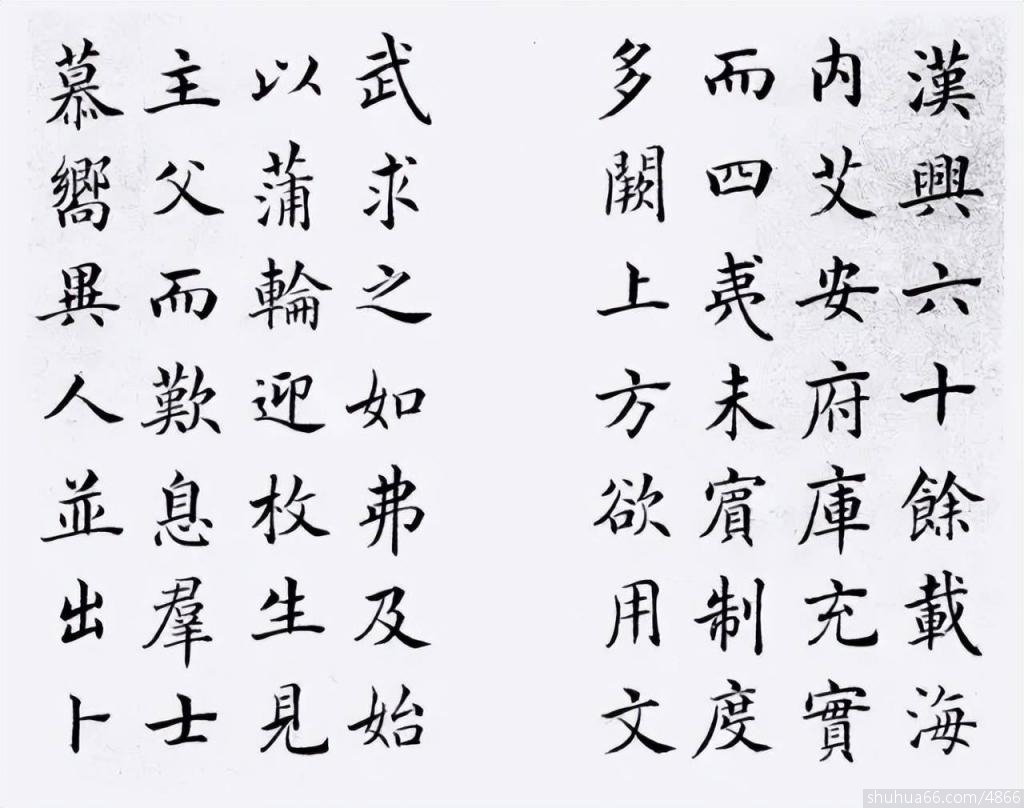 漢興六十餘載海
内艾安府庫充實
而四夷未賓制度
多闕上方欲用文
武求之如弗及始
以蒲輪迎枚生見
主父而歎息羣士
慕嚮異人並出卜
shuhua66.com/4866